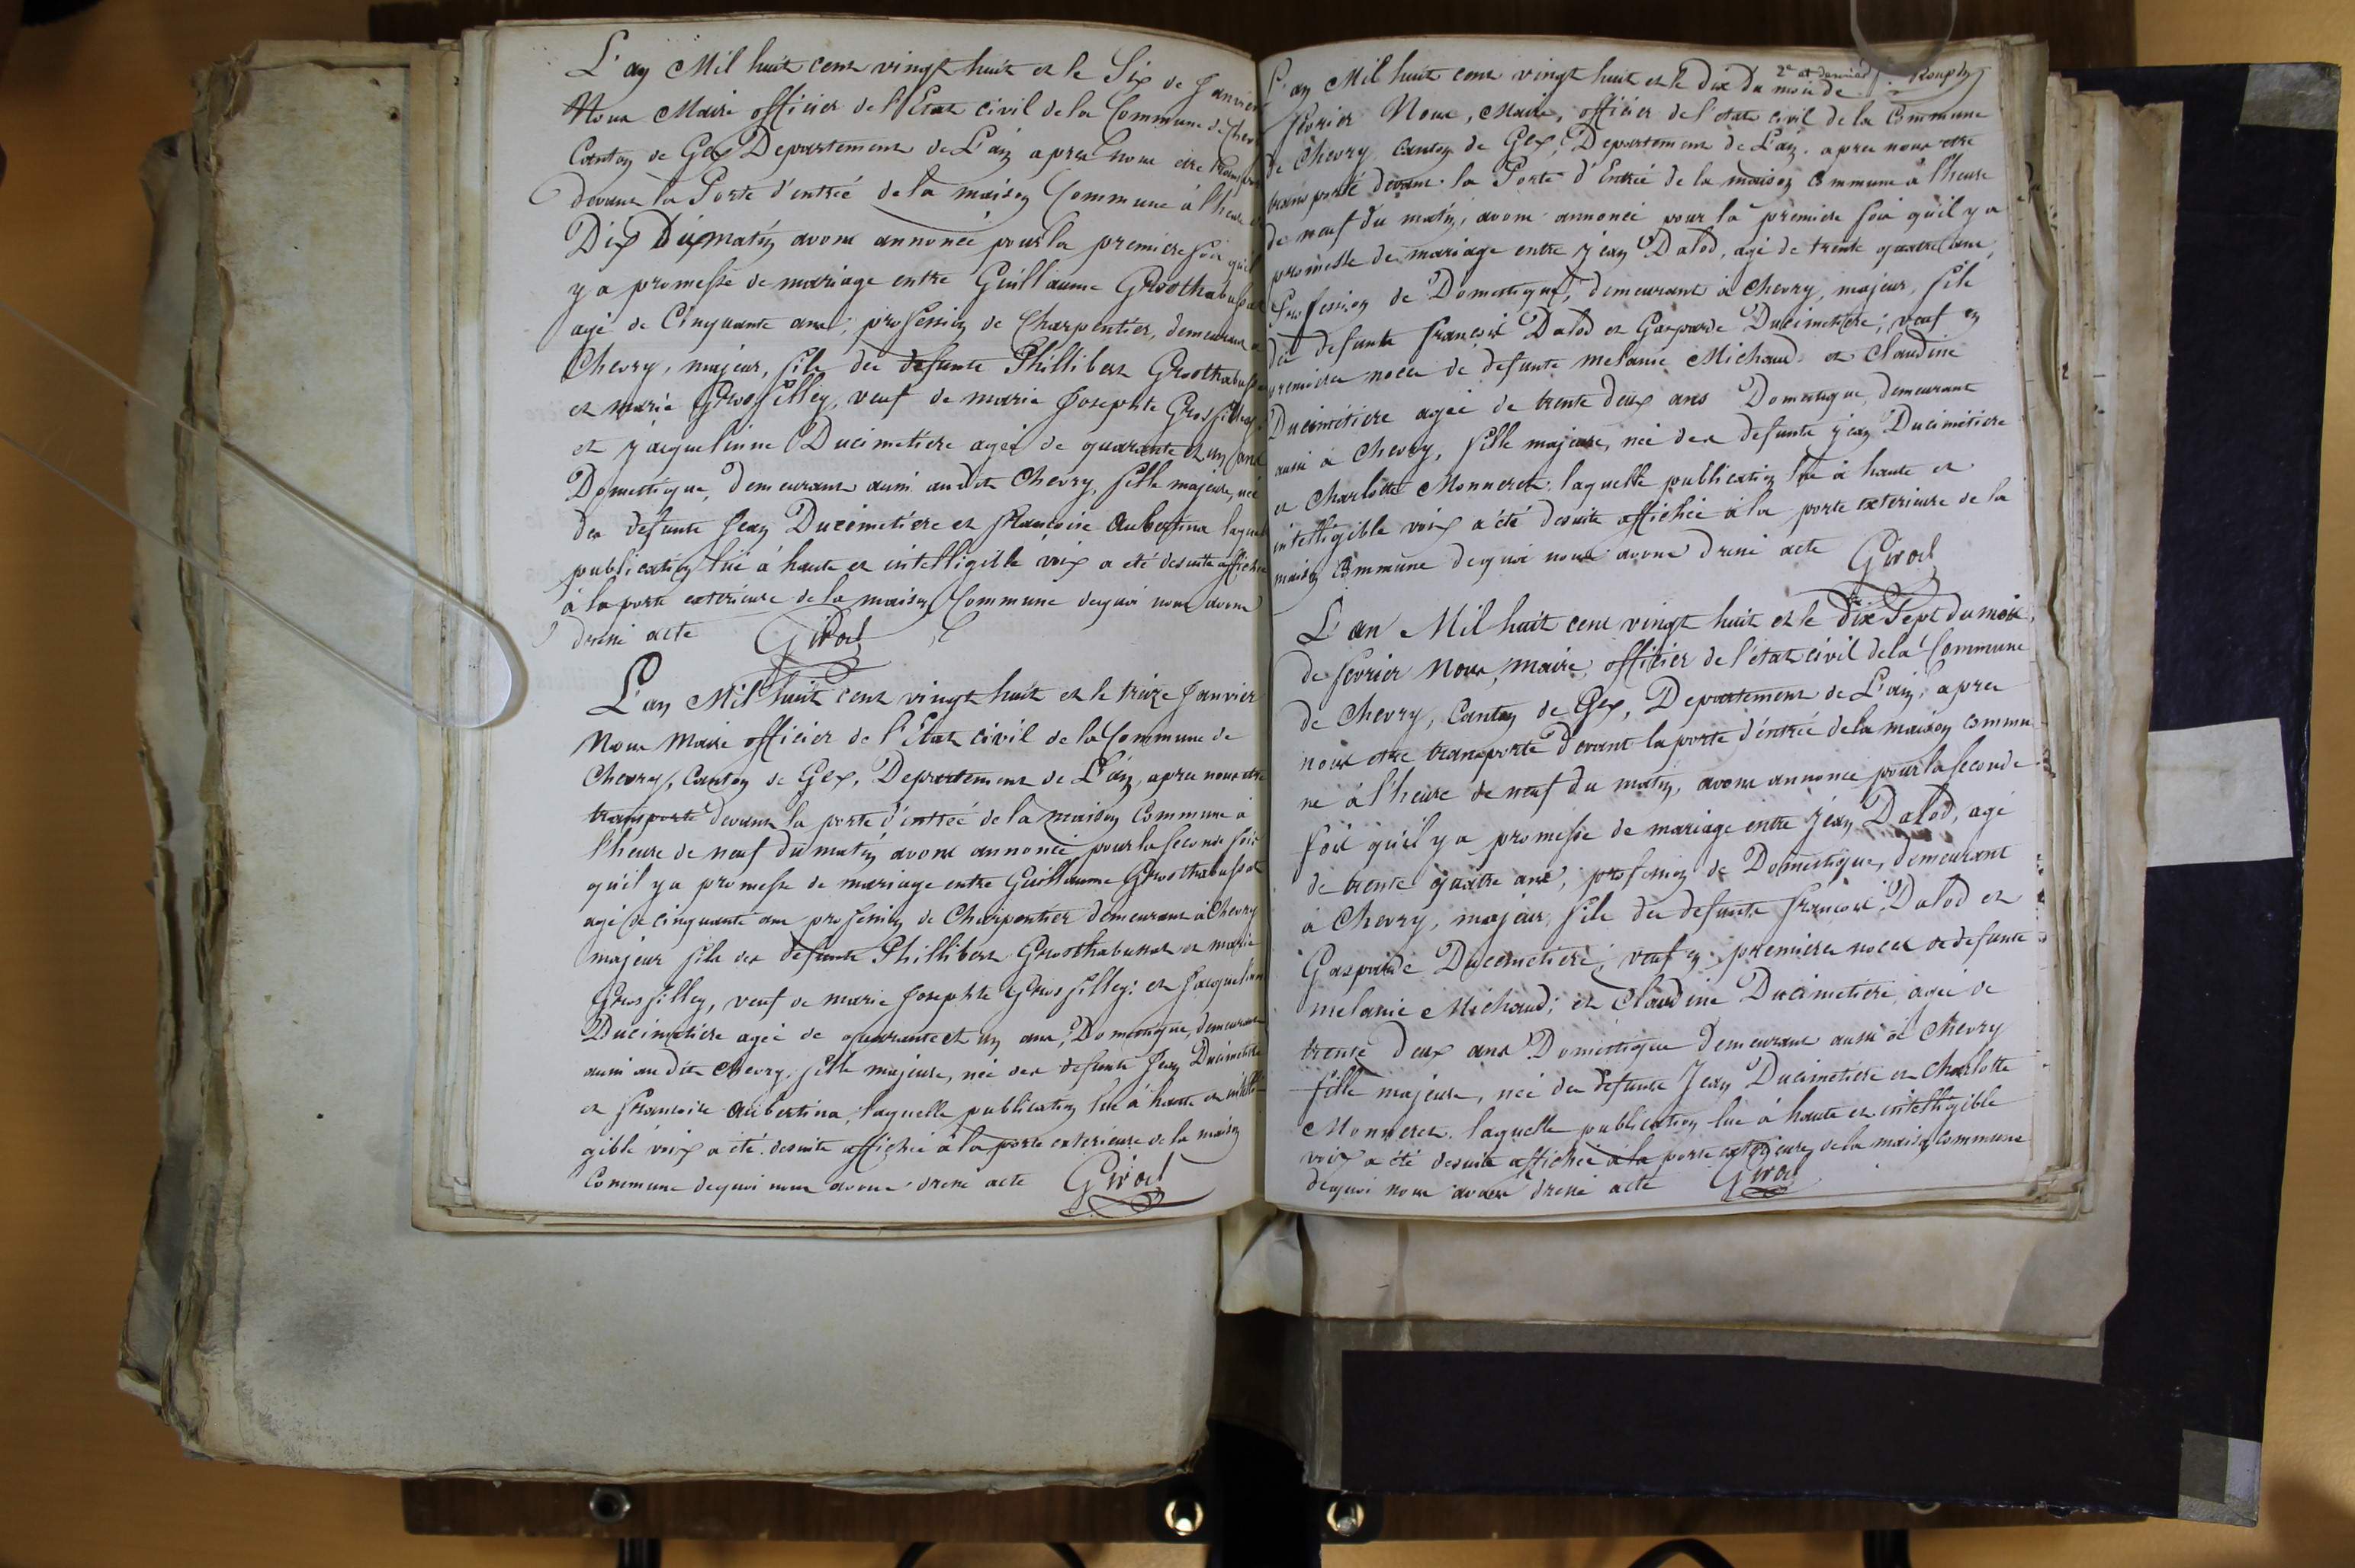 L'an Mil huit cent vingt huit et le Six de Janvier
Nous Maire officier de l'Etat civil de la Commune de Chev
Canton de Gex Departement de L'ain apres nous etre transporté
devant la Porte d'entrée de la maison Commune à l'heure de
Dix Du matin avons annoncé pour la premiere fois qu'il
y a promesse de mariage entre Guillaume Grosthabussat
agé de Cinquante ans, profession de Charpentier, demeurant a
Chevry, majeur, fils des defunts Phillibert Grosthabussat
et marie Grosfilley, veuf de marie Josephte Grosfilley;
et jacquelinne Ducimetiere agée de quarante et un ans
Domestique, demeurant aussi au dit Chevry, fille majeure, née
des defunts Jean Ducimetiere et francoise Aubertina laquel
publication lue à haute et intelligible voix a été desuite affichée
à la porte exterieure de la maison Commune dequoi nous avons
dressé acte Girod
L'an Mil huit cent vingt huit et le treize Janvier
Nous Maire officier de l'Etat civil de la Commune de
Chevry, Canton de Gex, Departement de L'ain, apres nous etre
transporté devant la porte d'entrée de la maison Commune à
l'heure de neuf du matin avons annoncé pour la seconde fois
qu'il y a promesse de mariage entre Guillaume Grosthabussat
agé de cinquante ans profession de Charpentier demeurant à Chevry
majeur fils des defunts Phillibert Grosthabussat et marie
Grosfilley, veuf de marie Josephte Grosfilley: et Jacquelinne
Ducimetiere agée de quarante et un ans, Domestique, demeurant
aussi au dit Chevry, fille majeure, née des defunts Jean Ducimetiere
et francoise Aubertina, laquelle publication lue à haute et intelli-
gible voix a été desuite affichée à la porte exterieure de la maison
Commune dequoi nous avons dressé acte Girod
2e et dernier f. Rouph
L'an Mil huit cent vingt huit et le dix du mois de
fevrier Nous, Maire, officier de l'etat civil de la Commune
de Chevry, Canton de Gex, Departement de L'ain. apres nous etre
transporté devant la Porte d'Entrée de la maison Commune à l'heure
de neuf du matin, avons annoncé pour la premiere fois qu'il y a
promesse de mariage entre jean Dalod, agé de trente quatre ans,
Profession de Domestique, demeurant à Chevry, majeur, fils
des defunts francois Dalod et Gasparde Ducimetiere; veuf en
premieres noces de defunte melanie Michaud: et Claudine
Ducimetiere agée de trente deux ans Domestique, demeurant
aussi à Chevry, fille majeure, née des defunts jean Ducimetiere
et Charlotte Monneret: laquelle publication lue à haute et
intelligible voix a été desuite affichée à la porte exterieure de la
maison Commune dequoi nous avons dressé acte Girod
L'an Mil huit cent vingt huit et le Dix Sept du mois
de fevrier Nous, maire, officier de l'état civil de la Commune
de Chevry, Canton de Gex, Departement de L'ain, apres
nous etre transporté devant la porte d'entrée de la maison commu-
ne à l'heure de neuf du matin, avons annoncé pour la seconde
fois qu'il y a promesse de mariage entre jean Dalod, agé
de trente quatre ans, profession de Domestique, demeurant
à Chevry, majeur, fils des defunts francois Dalod et
Gasparde Ducimetiere, veuf en premieres noces de defunte
melanie Michaud; et Claudine Ducimetiere, agée de
trente deux ans Domestique demeurant aussi à Chevry
fille majeure, née des defunts Jean Ducimetiere et Charlotte
Monneret. laquelle publication lue à haute et intelligible
voix a été desuite affichée à la porte exterieure de la maison Commune
dequoi nous avons dressé acte Girod